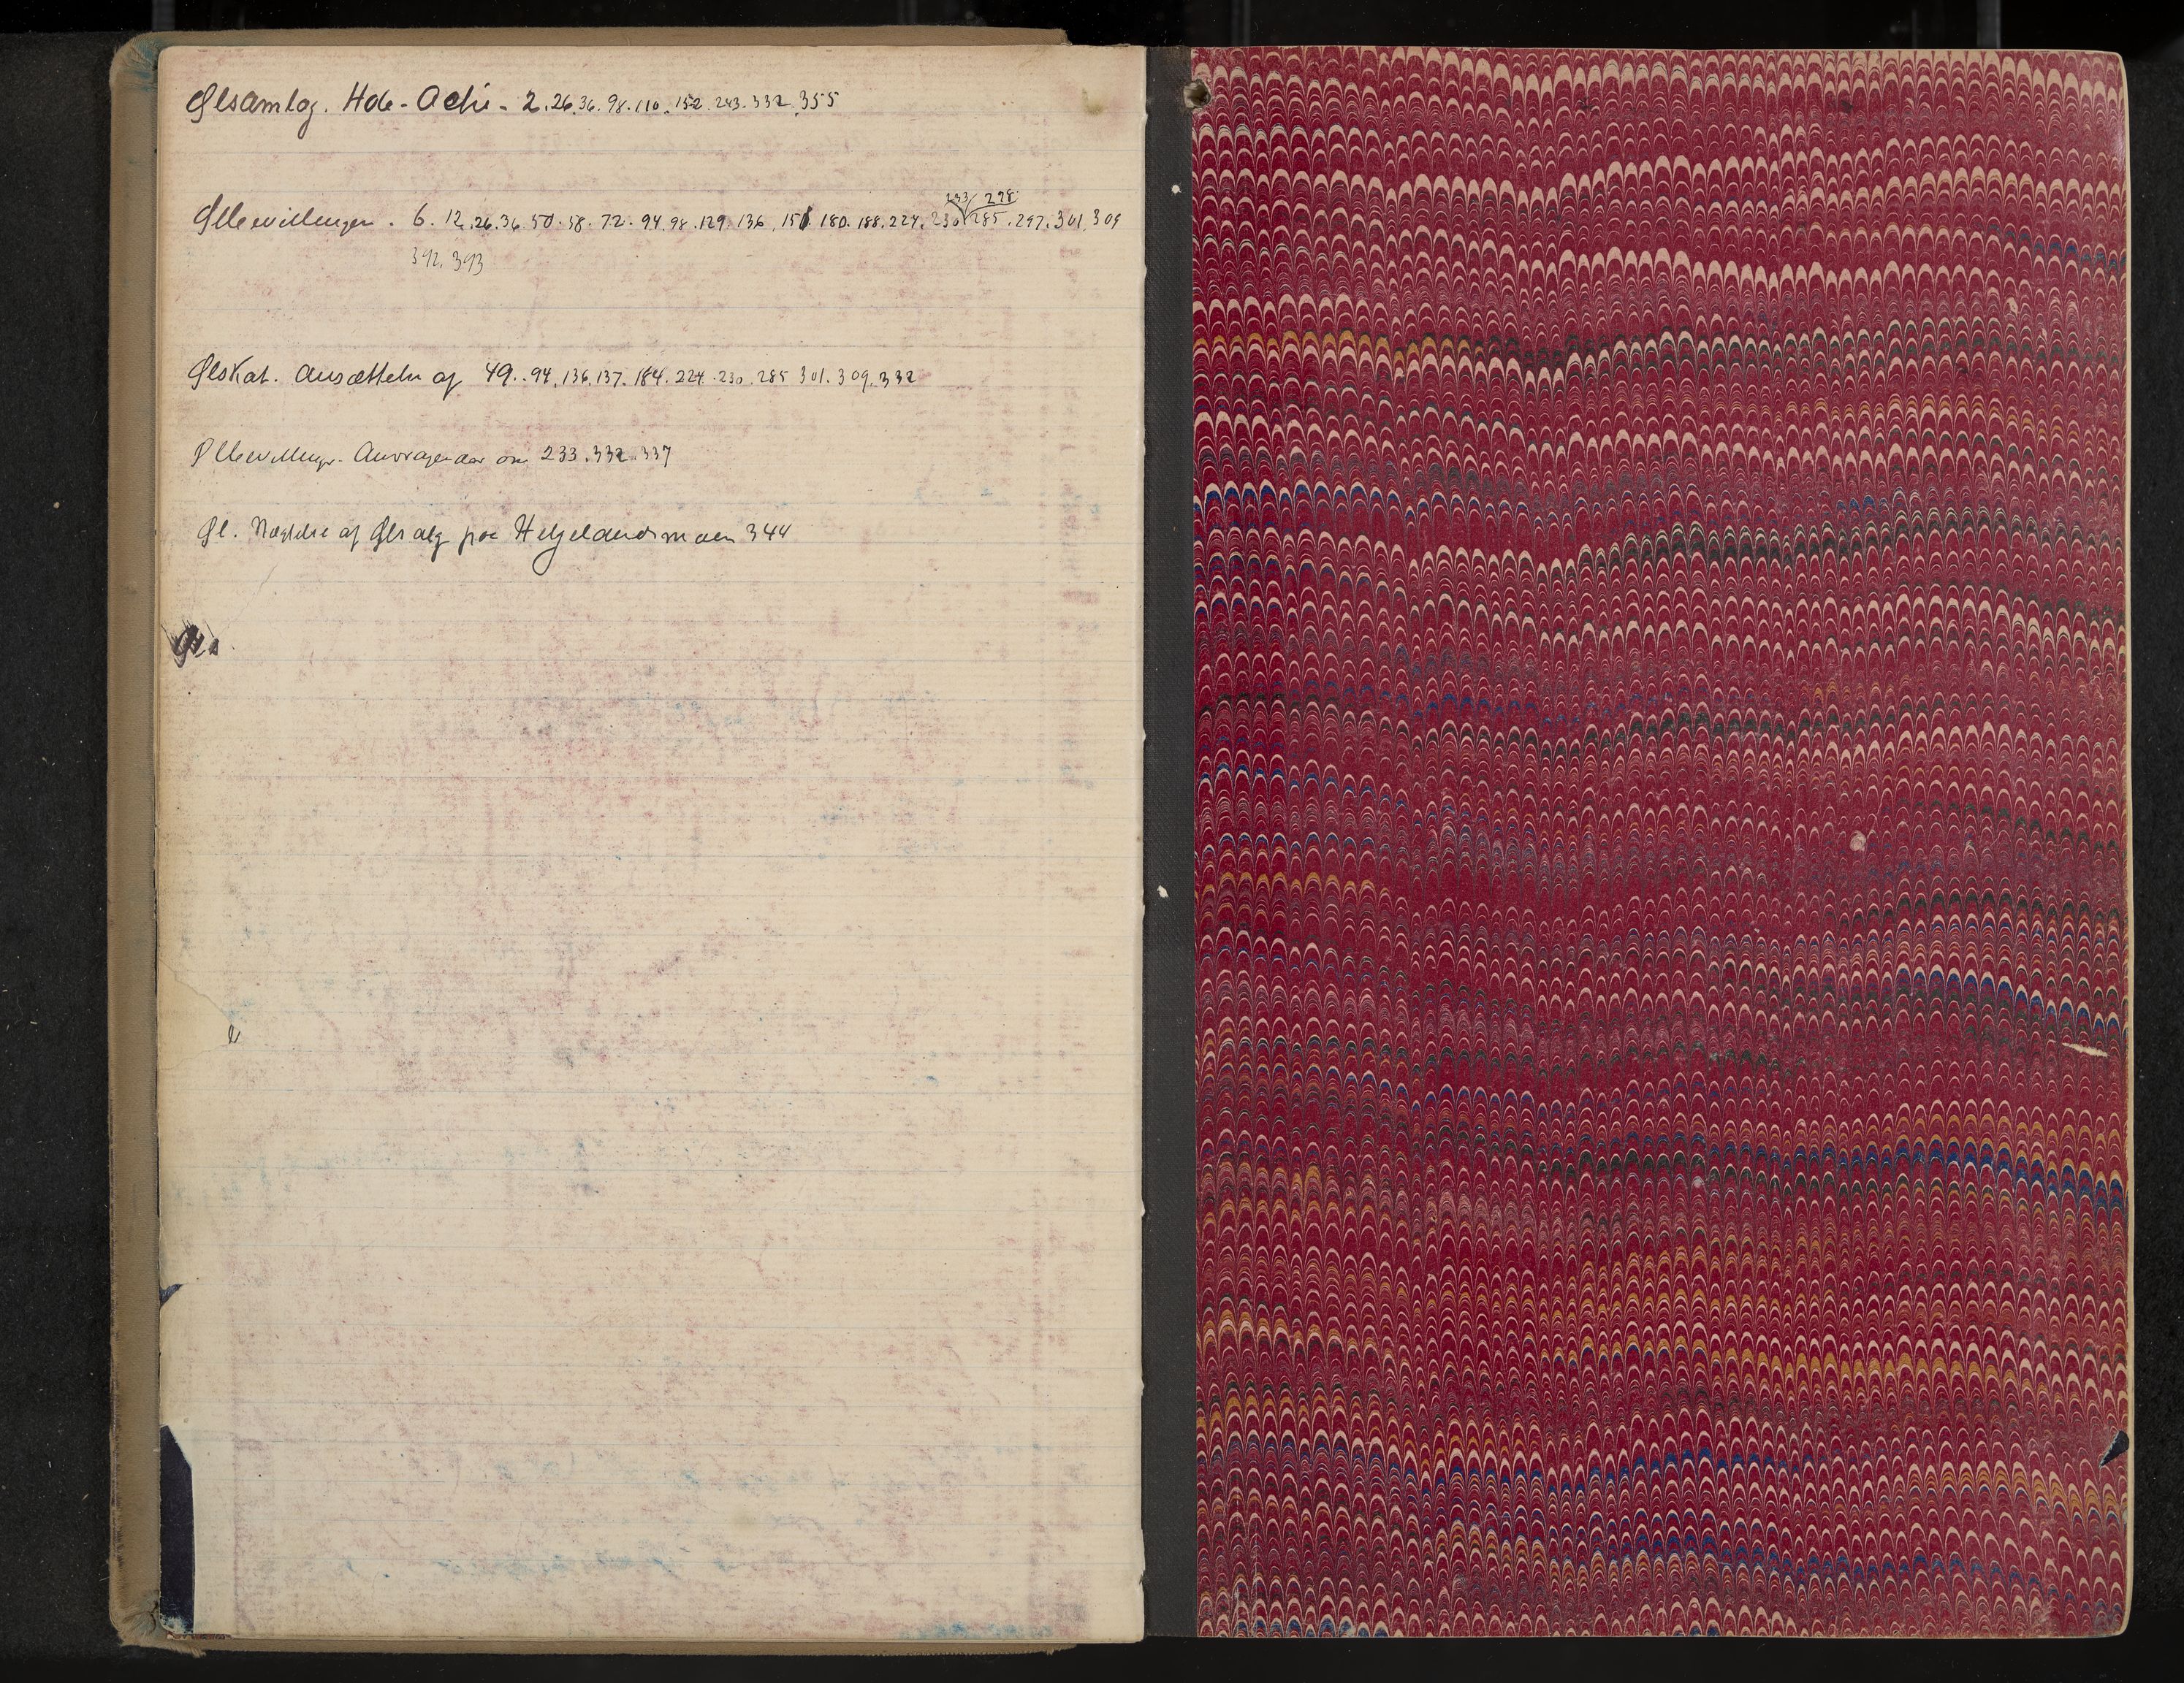 Ølsamlag. Hde-Actie - 2. 26. 36. 98. 110. 152. 243. 332. 355
233 / 278
Ølbevillinger. 6. 12. 26. 36. 50. 58. 72. 94. 98. 129. 136. 151 180. 188. 224. 230 285. 297. 301. 309
392. 393
Ølskat. Ansættelse af 49. 94. 136. 137. 184. 224. 230. 285 301. 309. 332
Ølbevillinger. om 233. 332. 337
Øl. Nægtelse af Ølsalg paa Helgelandsmoen 344
Øls